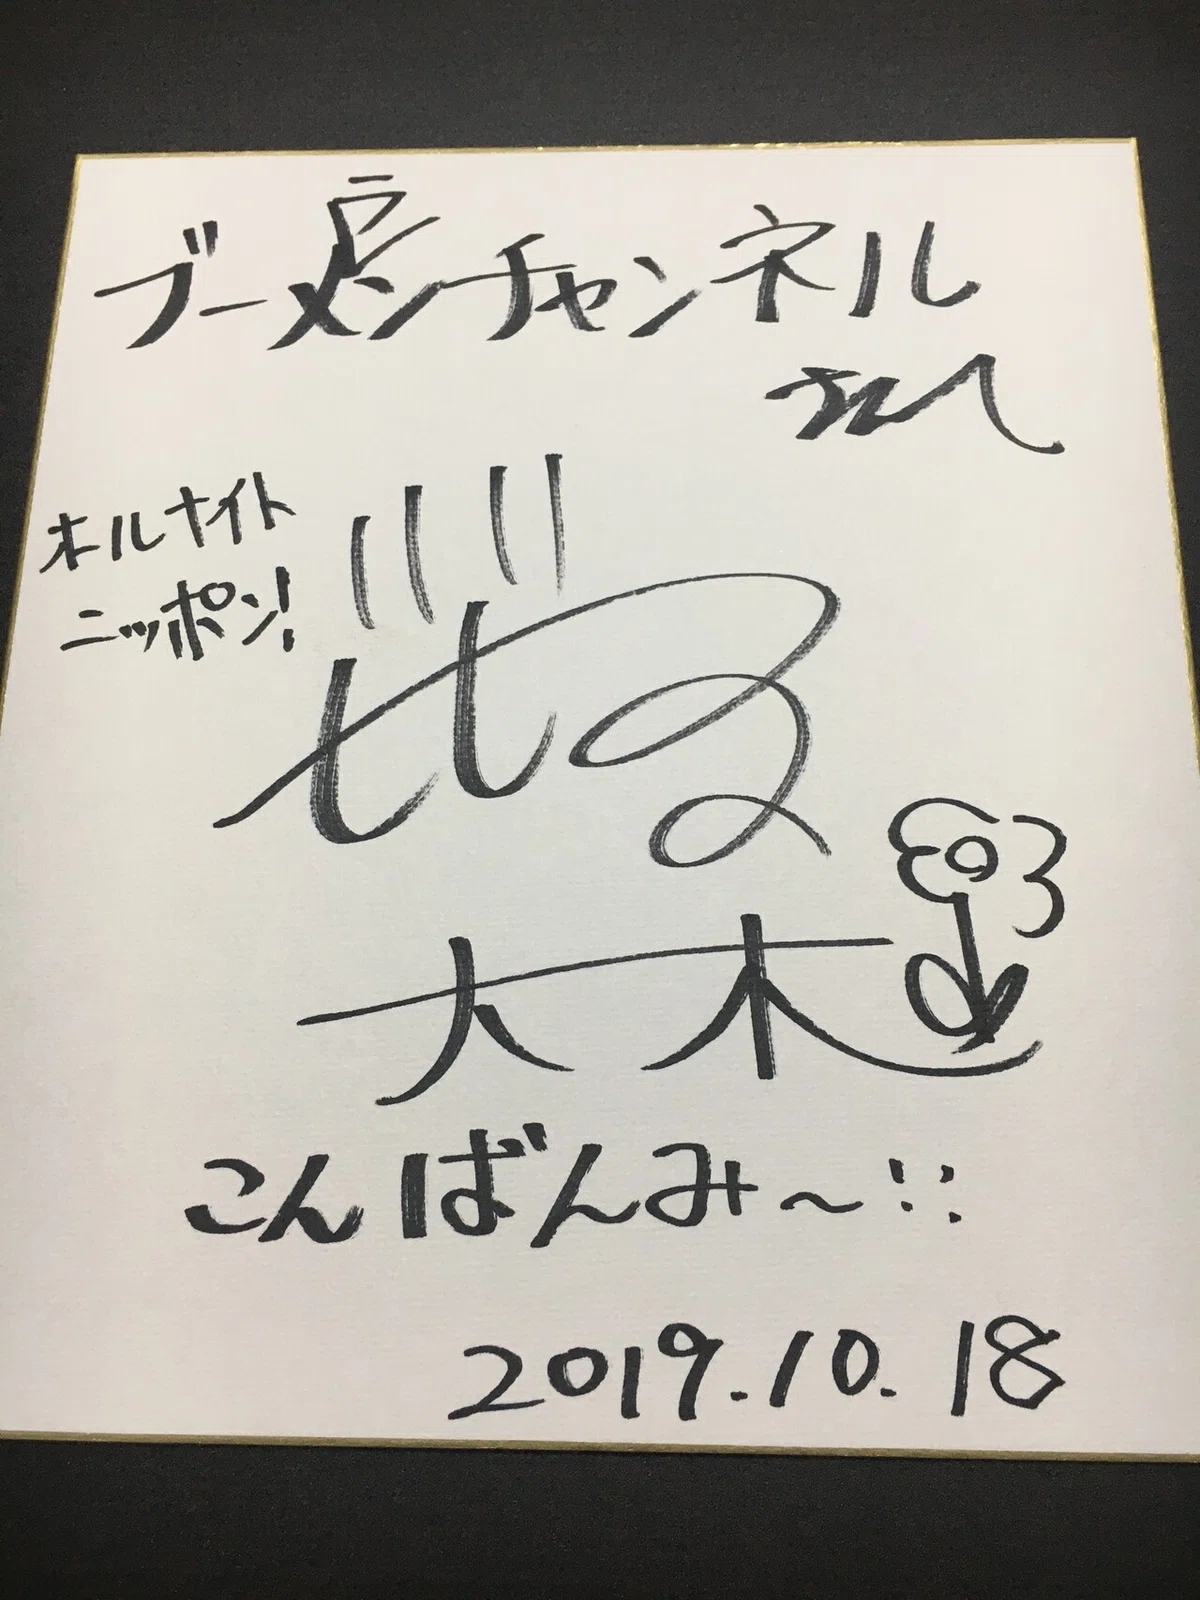 ブーメランチャンネル
さん
オールナイト
ニッポン!
ビビる
大木
こんばんみ〜!!
2019.10.18